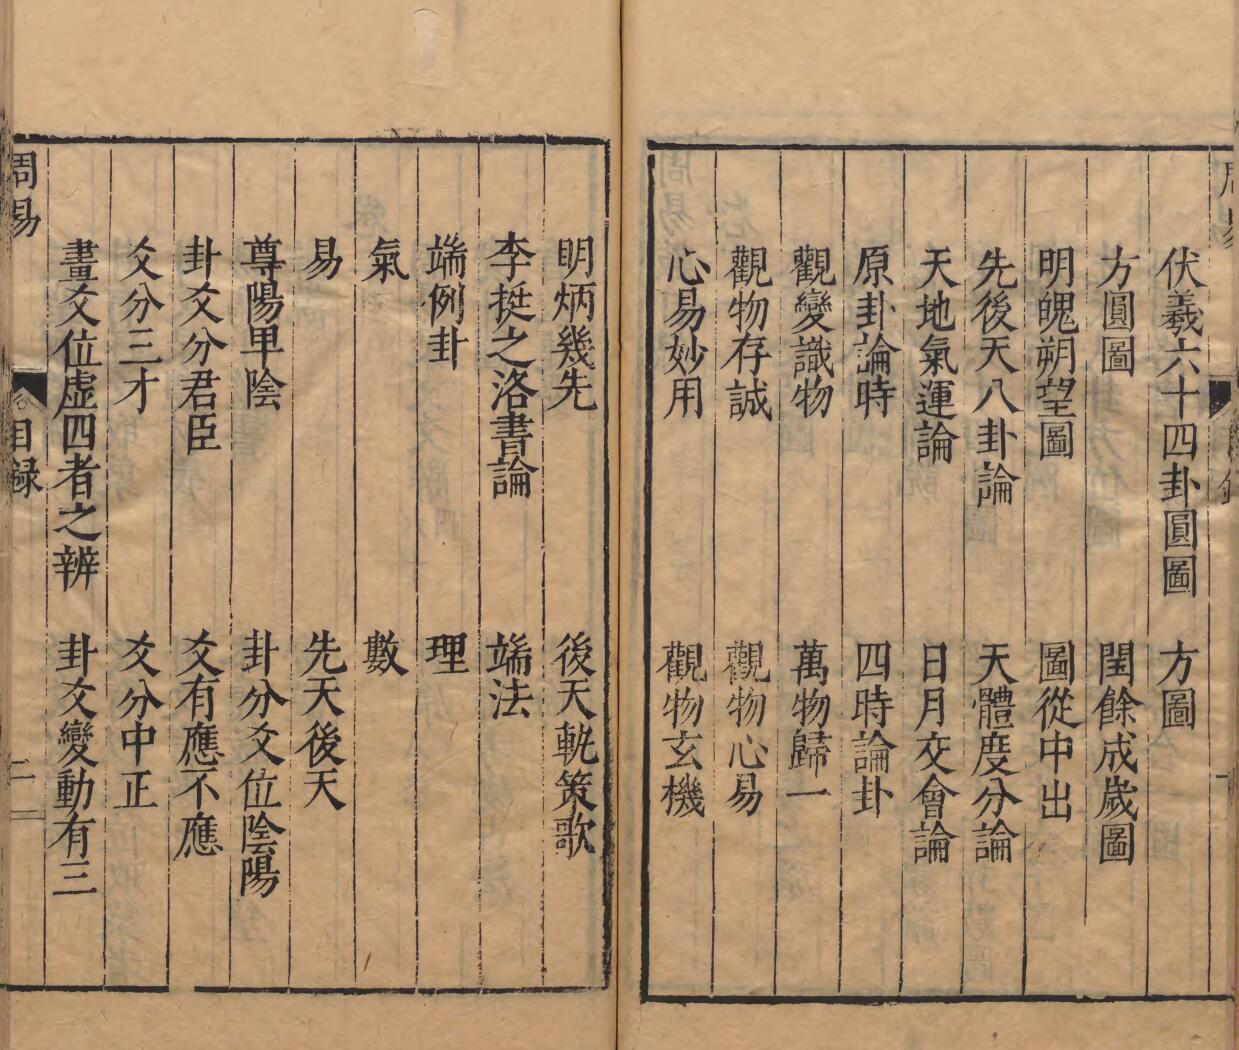 伏羲六十四卦圓圖　方圖
方圓圖　閏餘成歲圖
明魄朔望圖　圖從中出
先後天八卦論　天體度分論
天地氣運論　日月交會論
原卦論時　四時論卦
觀變識物　萬物歸一
觀物存誠　觀物心易
心易妙用　觀物玄機
明炳幾先　後天軌策歌
李挺之洛書論　端法
端例卦　理
氣　數
易　先天後天
尊陽卑陰　卦分爻位陰陽
卦爻分君臣　爻有應不應
爻分三才　爻分中正
畫爻位虛四者之辨　卦爻變動有三
周易　目録　二